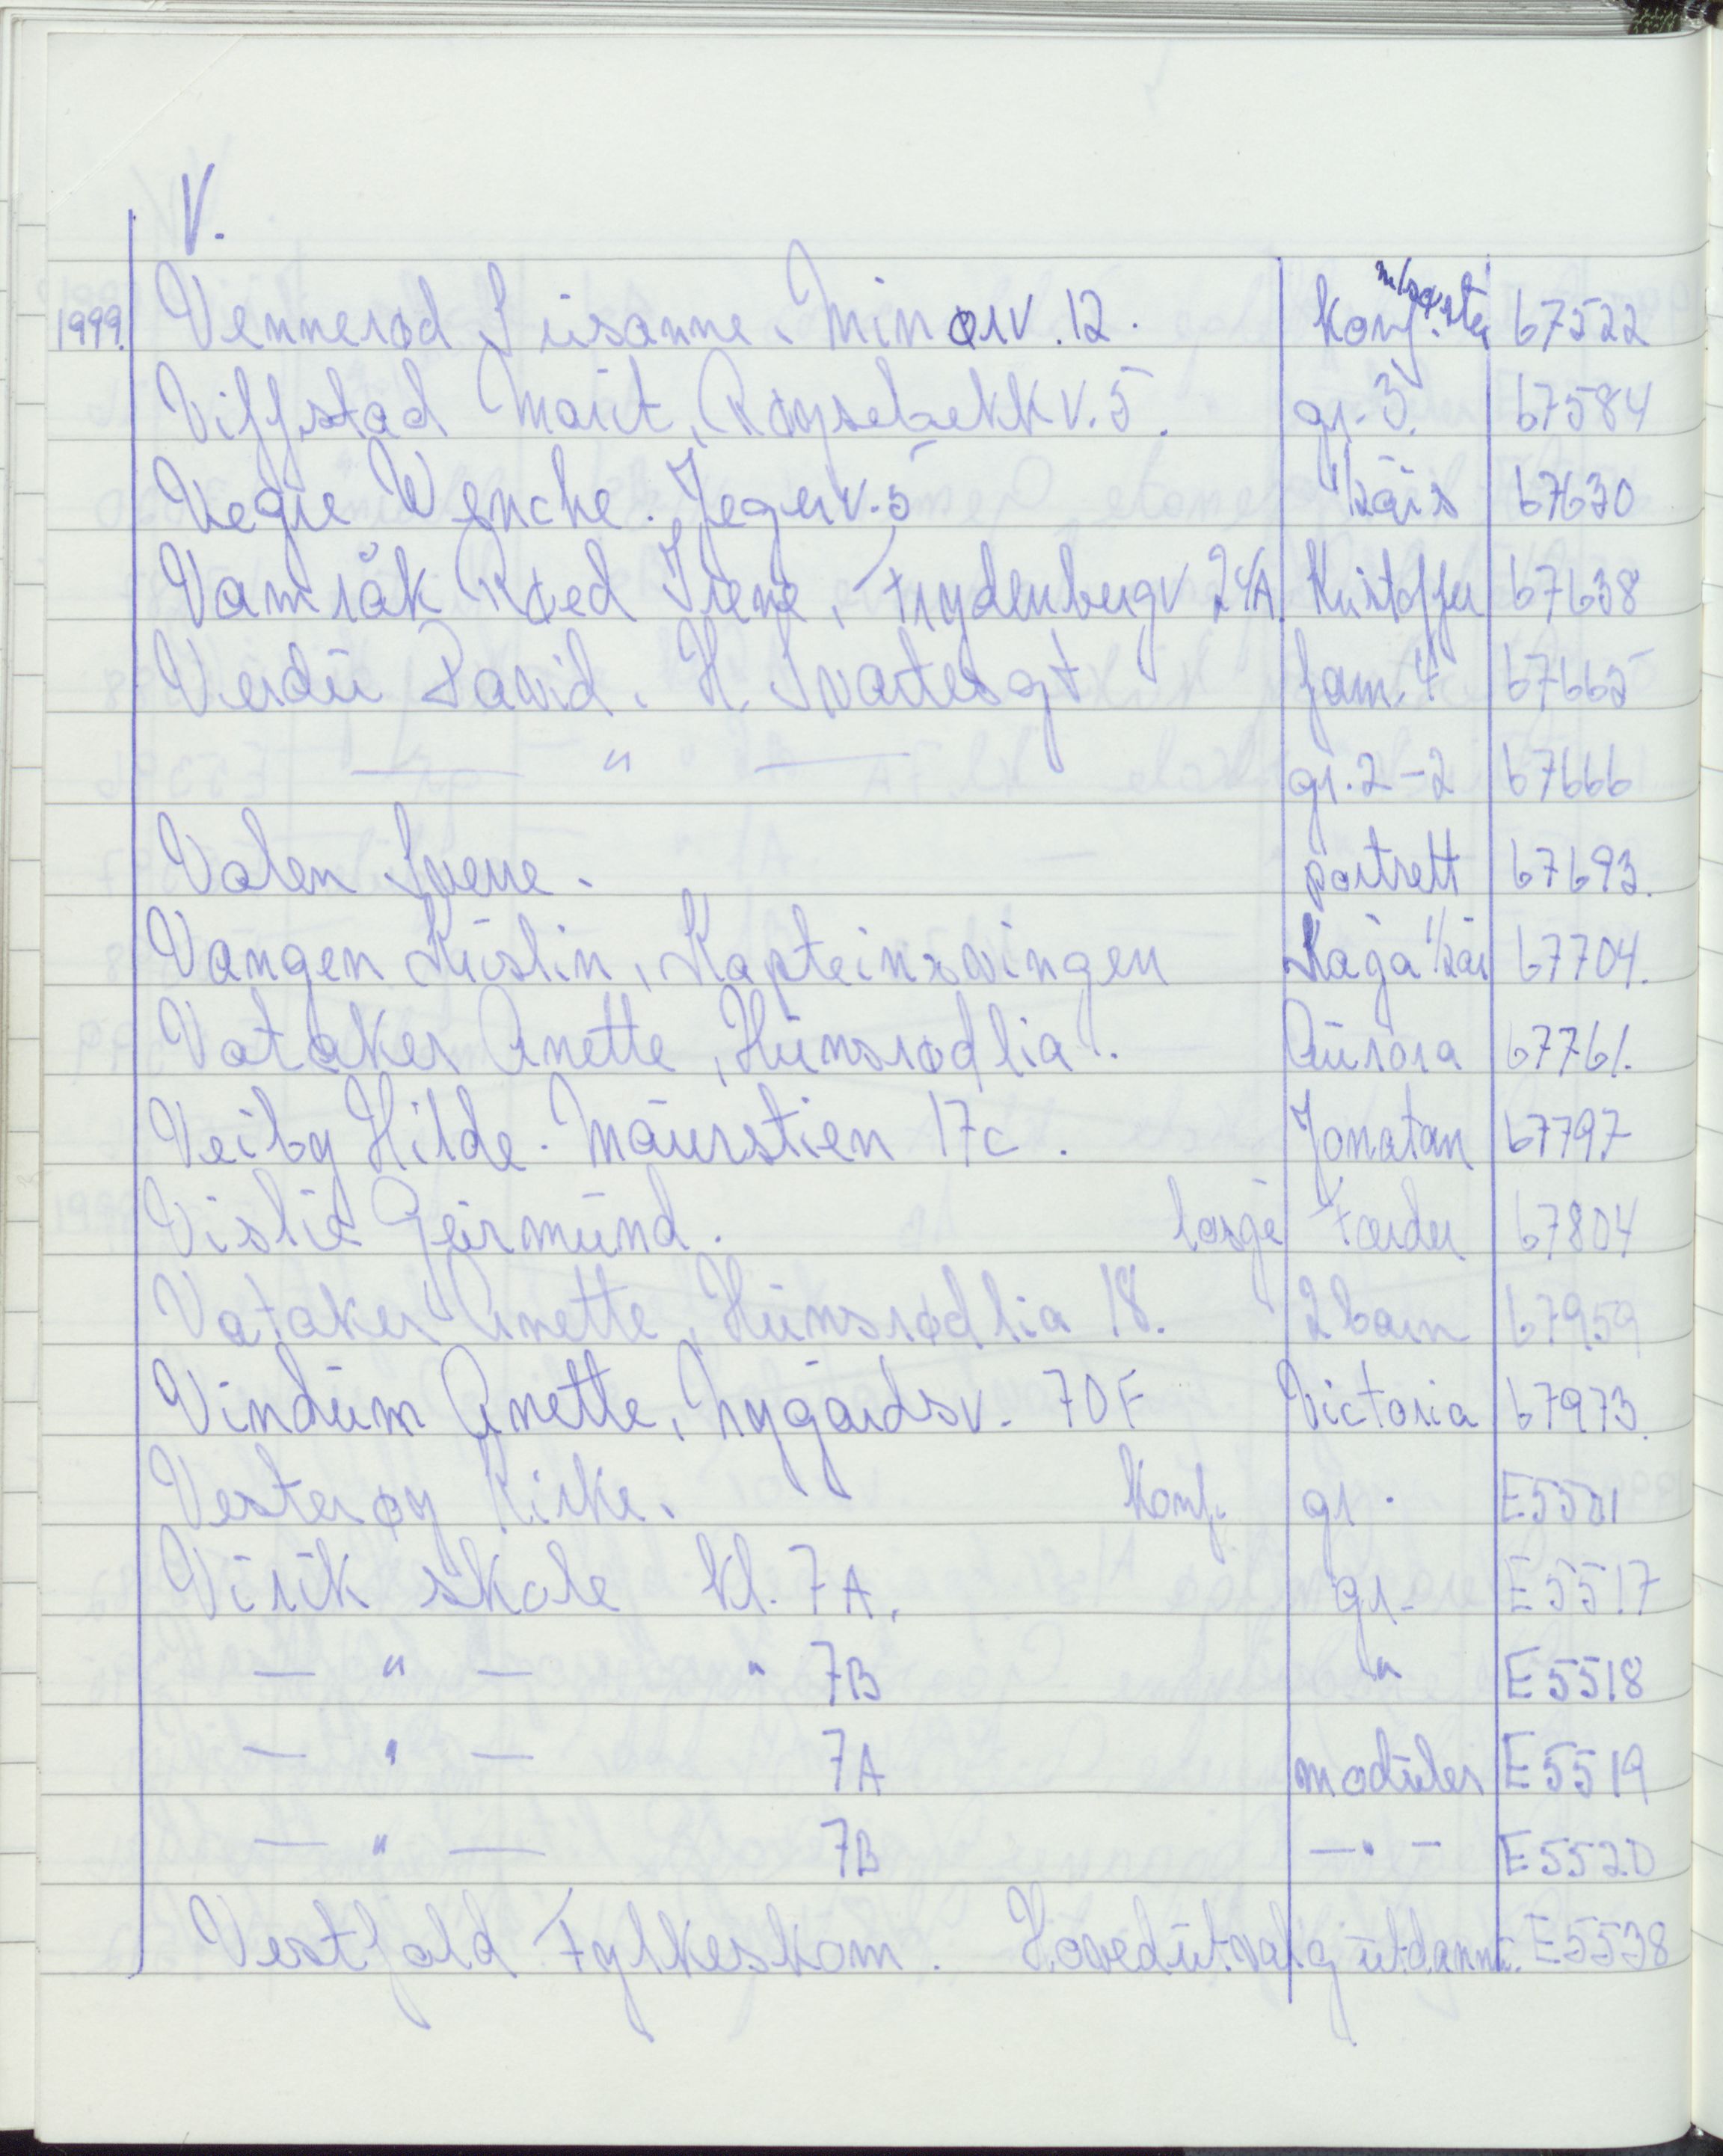 V.
1999. Vennerød Susanne. Minorv. 12. Konf. m/søster 67522
Viffstad Marit, Røysebekkv. 5. gr. 3. 67584
Vegge Wenche. Jegerv. 5 1/2 års 67630
Vamråk Røed Irene, Frydenbergv 24A. Kristoffer 67638
Verdu David. H. Svartesgt fam. 4 67665
— " — gr. 2-2 67666
Valen Sverre. portrett 67693.
Vangen Kristin, Kapteinsvingen Kaja 1/2 år 67704.
Vataker Anette, Hunsrødlia. Aurora 67761.
Veiby Hilde. Maurstien 17c. Jonatan 67797
Vislie Geirmund. losje Færder 67804
Vataker Anette, Hunsrødlia 18. 2 barn 67959
Vindum Anette, Nygårdsv. 70F Victoria 67973.
Vesterøy Kirke. Konf. gr. E5501
Virik skole kl. 7A. gr. E5517
— " — " 7B " E5518
— " — 7A moduler E5519
— " — 7B — " — E5520
Vestfold Fylkeskom. Hovedutvalg utdann. E5538